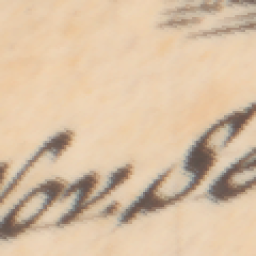 Nov. Se